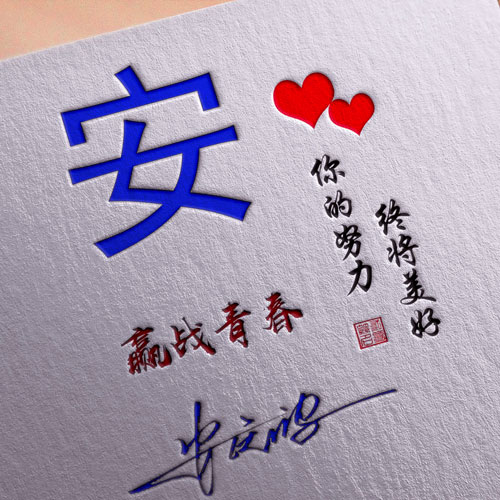 安
你的努力
终将美好
赢战青春